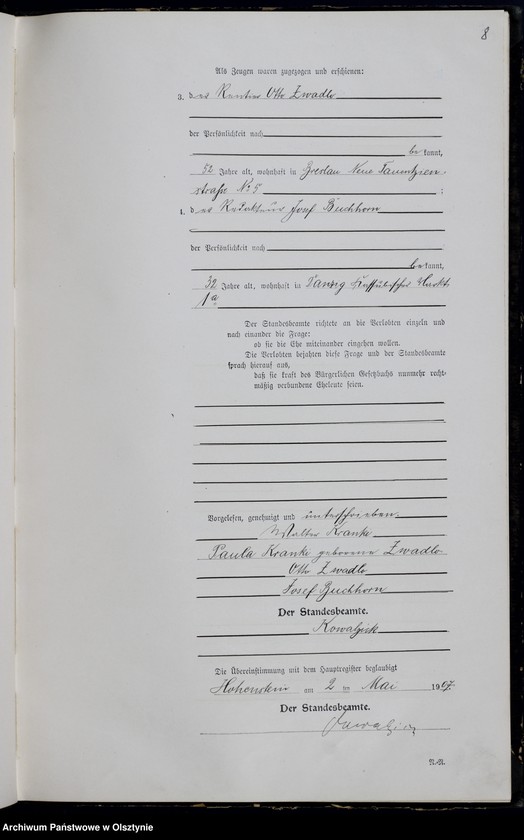 8
Als Zeugen waren zugezogen und erschienen:
3. der Rentier Otto Zwadlo
der Persönlichkeit nach
be kannt,
52 Jahre alt, wohnhaft in Breslau Neue Tauentzien-
straße No 5 ;
4. der Redakteur Josef Buchhorn
der Persönlichkeit nach
be kannt,
32 Jahre alt, wohnhaft in Danzig Kassubischer Markt
1a
Der Standesbeamte richtete an die Verlobten einzeln und
nach einander die Frage:
ob sie die Ehe miteinander eingehen wollen.
Die Verlobten bejahten diese Frage und der Standesbeamte
sprach hierauf aus,
daß sie kraft des Bürgerlichen Gesetzbuchs nunmehr recht-
mäßig verbundene Eheleute seien.
Vorgelesen, genehmigt und unterschrieben
Walter Kranki
Paula Kranki geborene Zwadlo
Otto Zwadlo
Josef Buchhorn
Der Standesbeamte.
Kowalzick
Die Übereinstimmung mit dem Hauptregister beglaubigt
Hohenstein am 2 ten Mai 1907.
Der Standesbeamte.
N.-N.
Archiwum Państwowe w Olsztynie